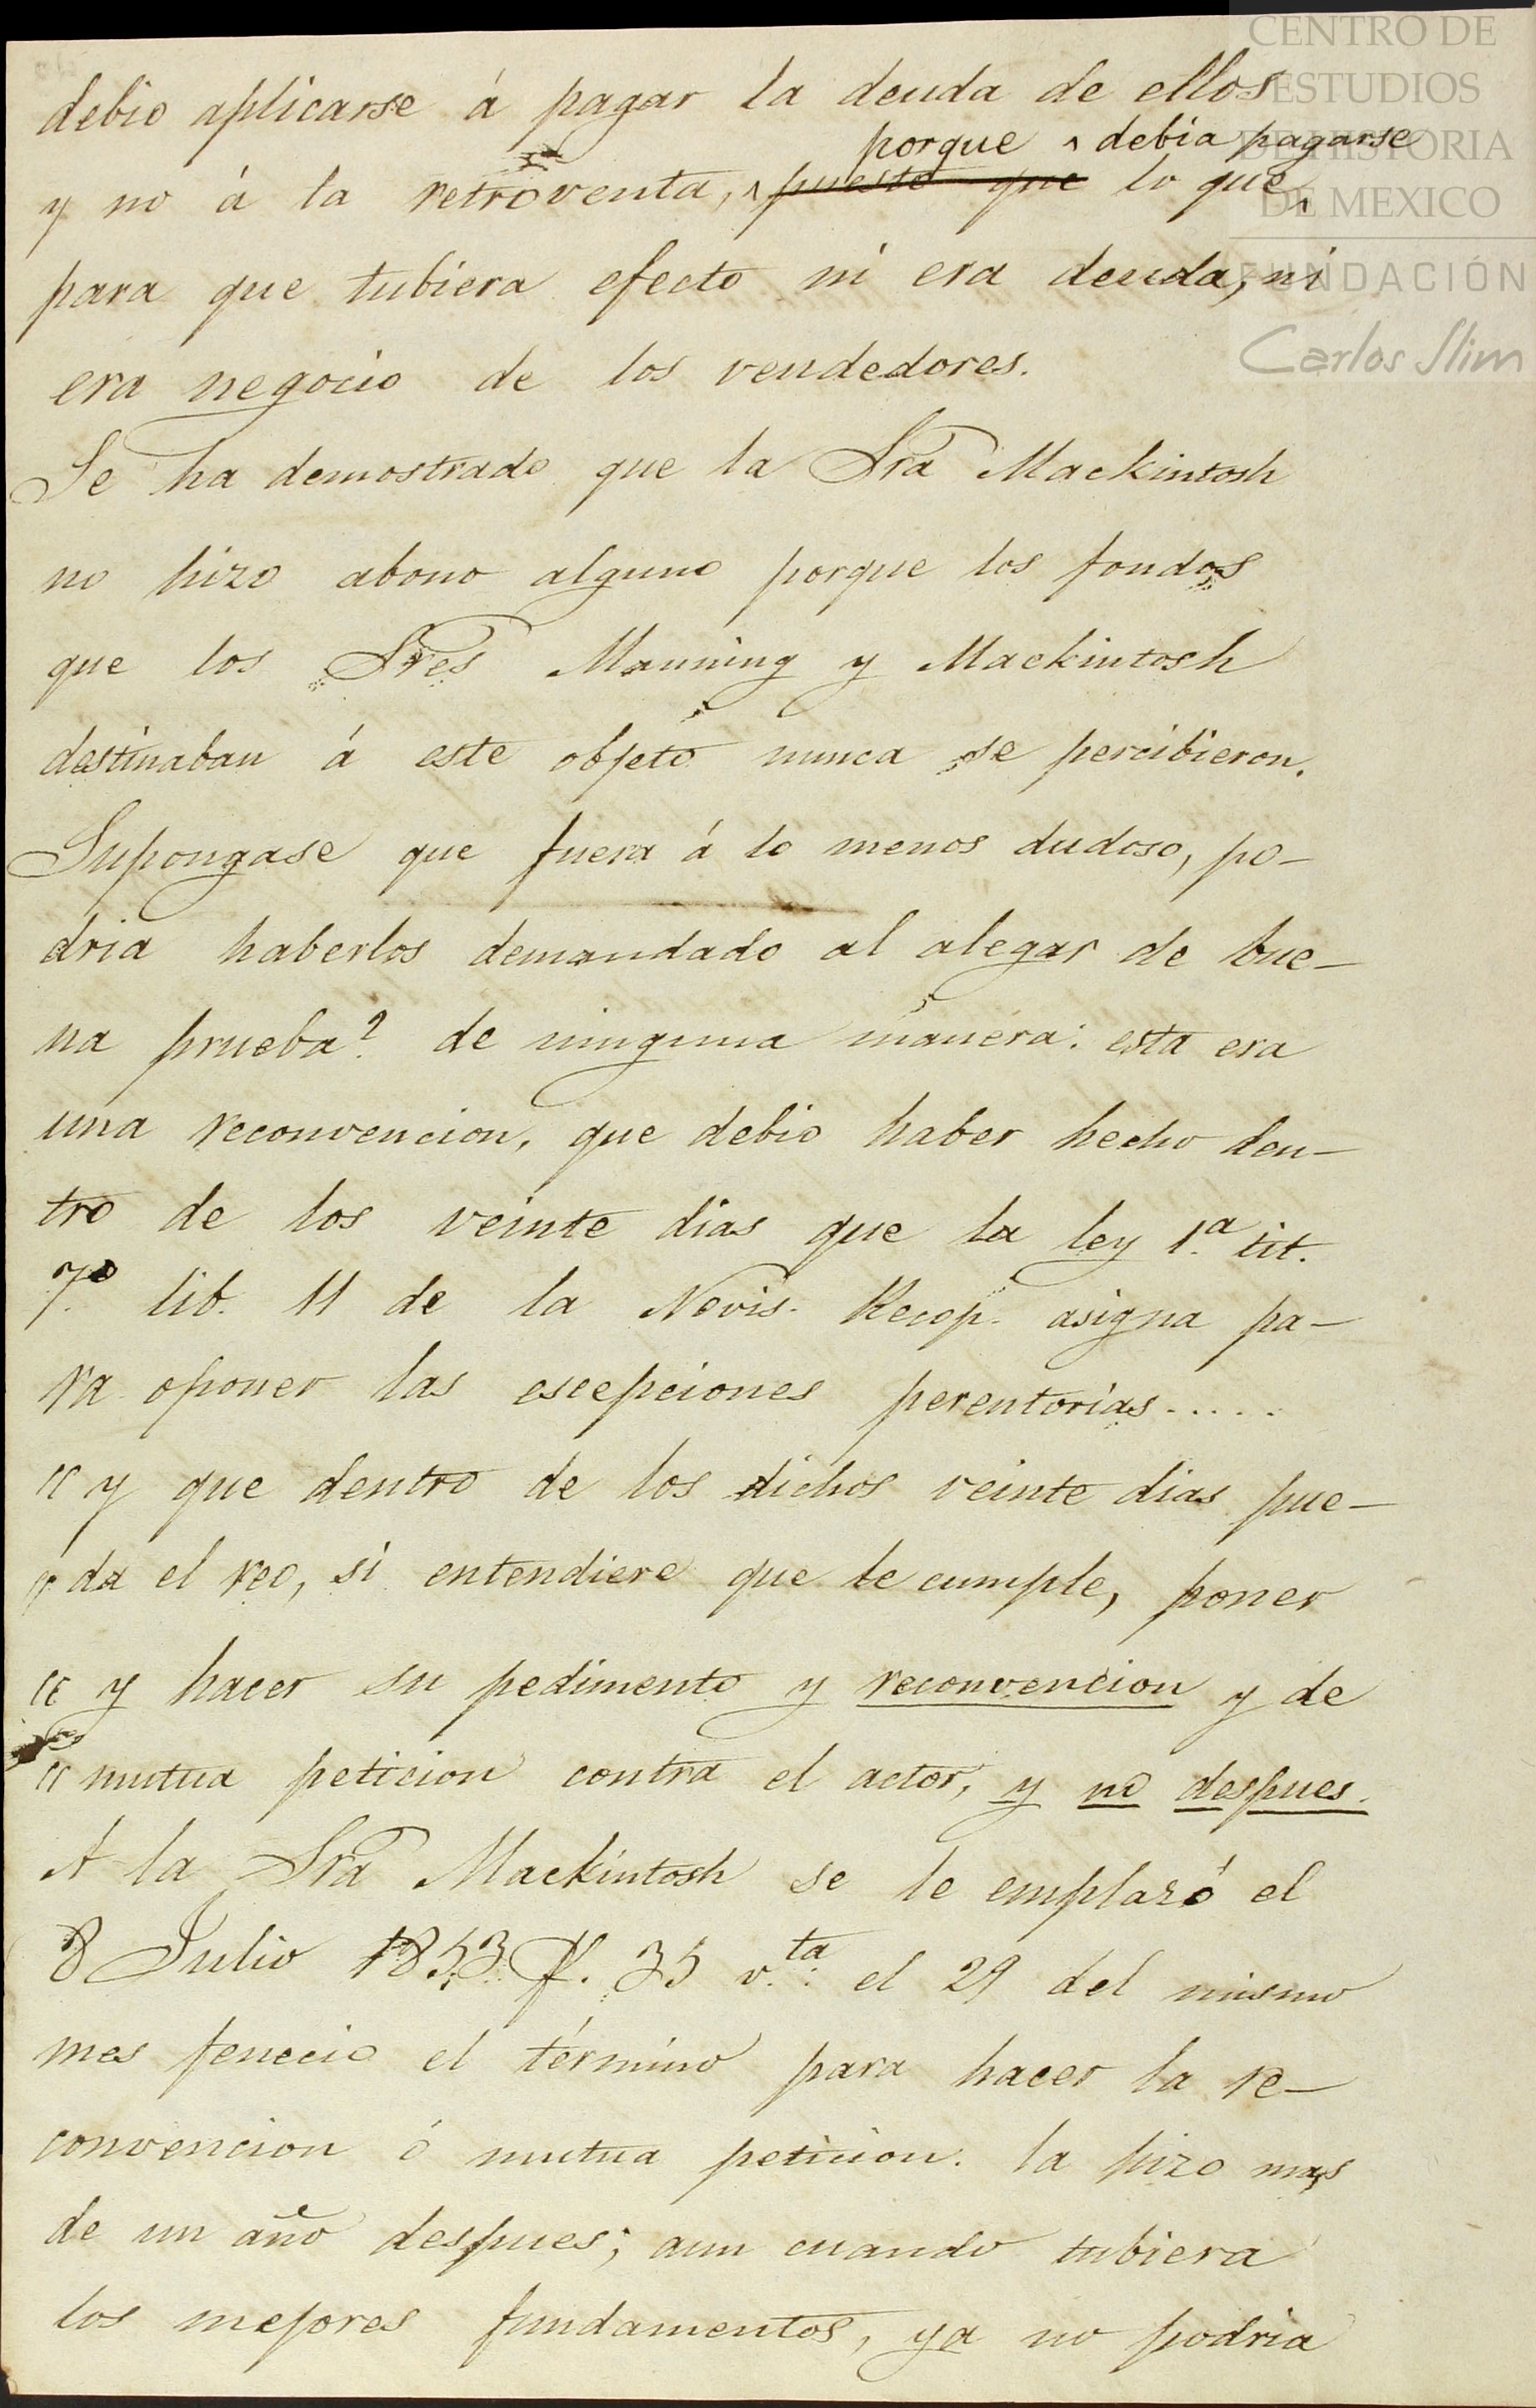 CENTRO DE
ESTUDIOS
DE HISTORIA
DE MEXICO
FUNDACIÓN
Carlos Slim
debio aplicarse á pagar la deuda de ellos
porque ^ debia pagarse
y no á la retroventa, ^ puesto que lo que ^
para que tubiera efecto ni era deuda, ni
era negocio de los vendedores.
Se ha demostrado que la Sra Mackintosh
no hizo abono alguno porque los fondos
que los Sres Manning y Mackintosh
destinaban á este objeto nunca se percibieron.
Supongase que fuera á lo menos dudoso, po-
dria haberlos demandado al alegar de bue-
na prueba? de ninguna manera: esta era
una reconvencion, que debio haber hecho den-
tro de los veinte dias que la ley 1.ª tit.
7.º lib. 11 de la Novis. Recop. asigna pa-
ra oponer las escepciones perentorias.....
"y que dentro de los dichos veinte dias pue-
"da el reo, si entendiere que le cumple, poner
"y hacer su pedimento y reconvencion y de
"mutua peticion contra el actor, y no despues.
A la Sra Mackintosh se le emplazó el
8 Julio 1853 f. 35 v.ta: el 29 del mismo
mes fenecio el término para hacer la re-
convencion ó mutua peticion. la hizo mas
de un año despues; aun cuando tubiera
los mejores fundamentos, ya no podria